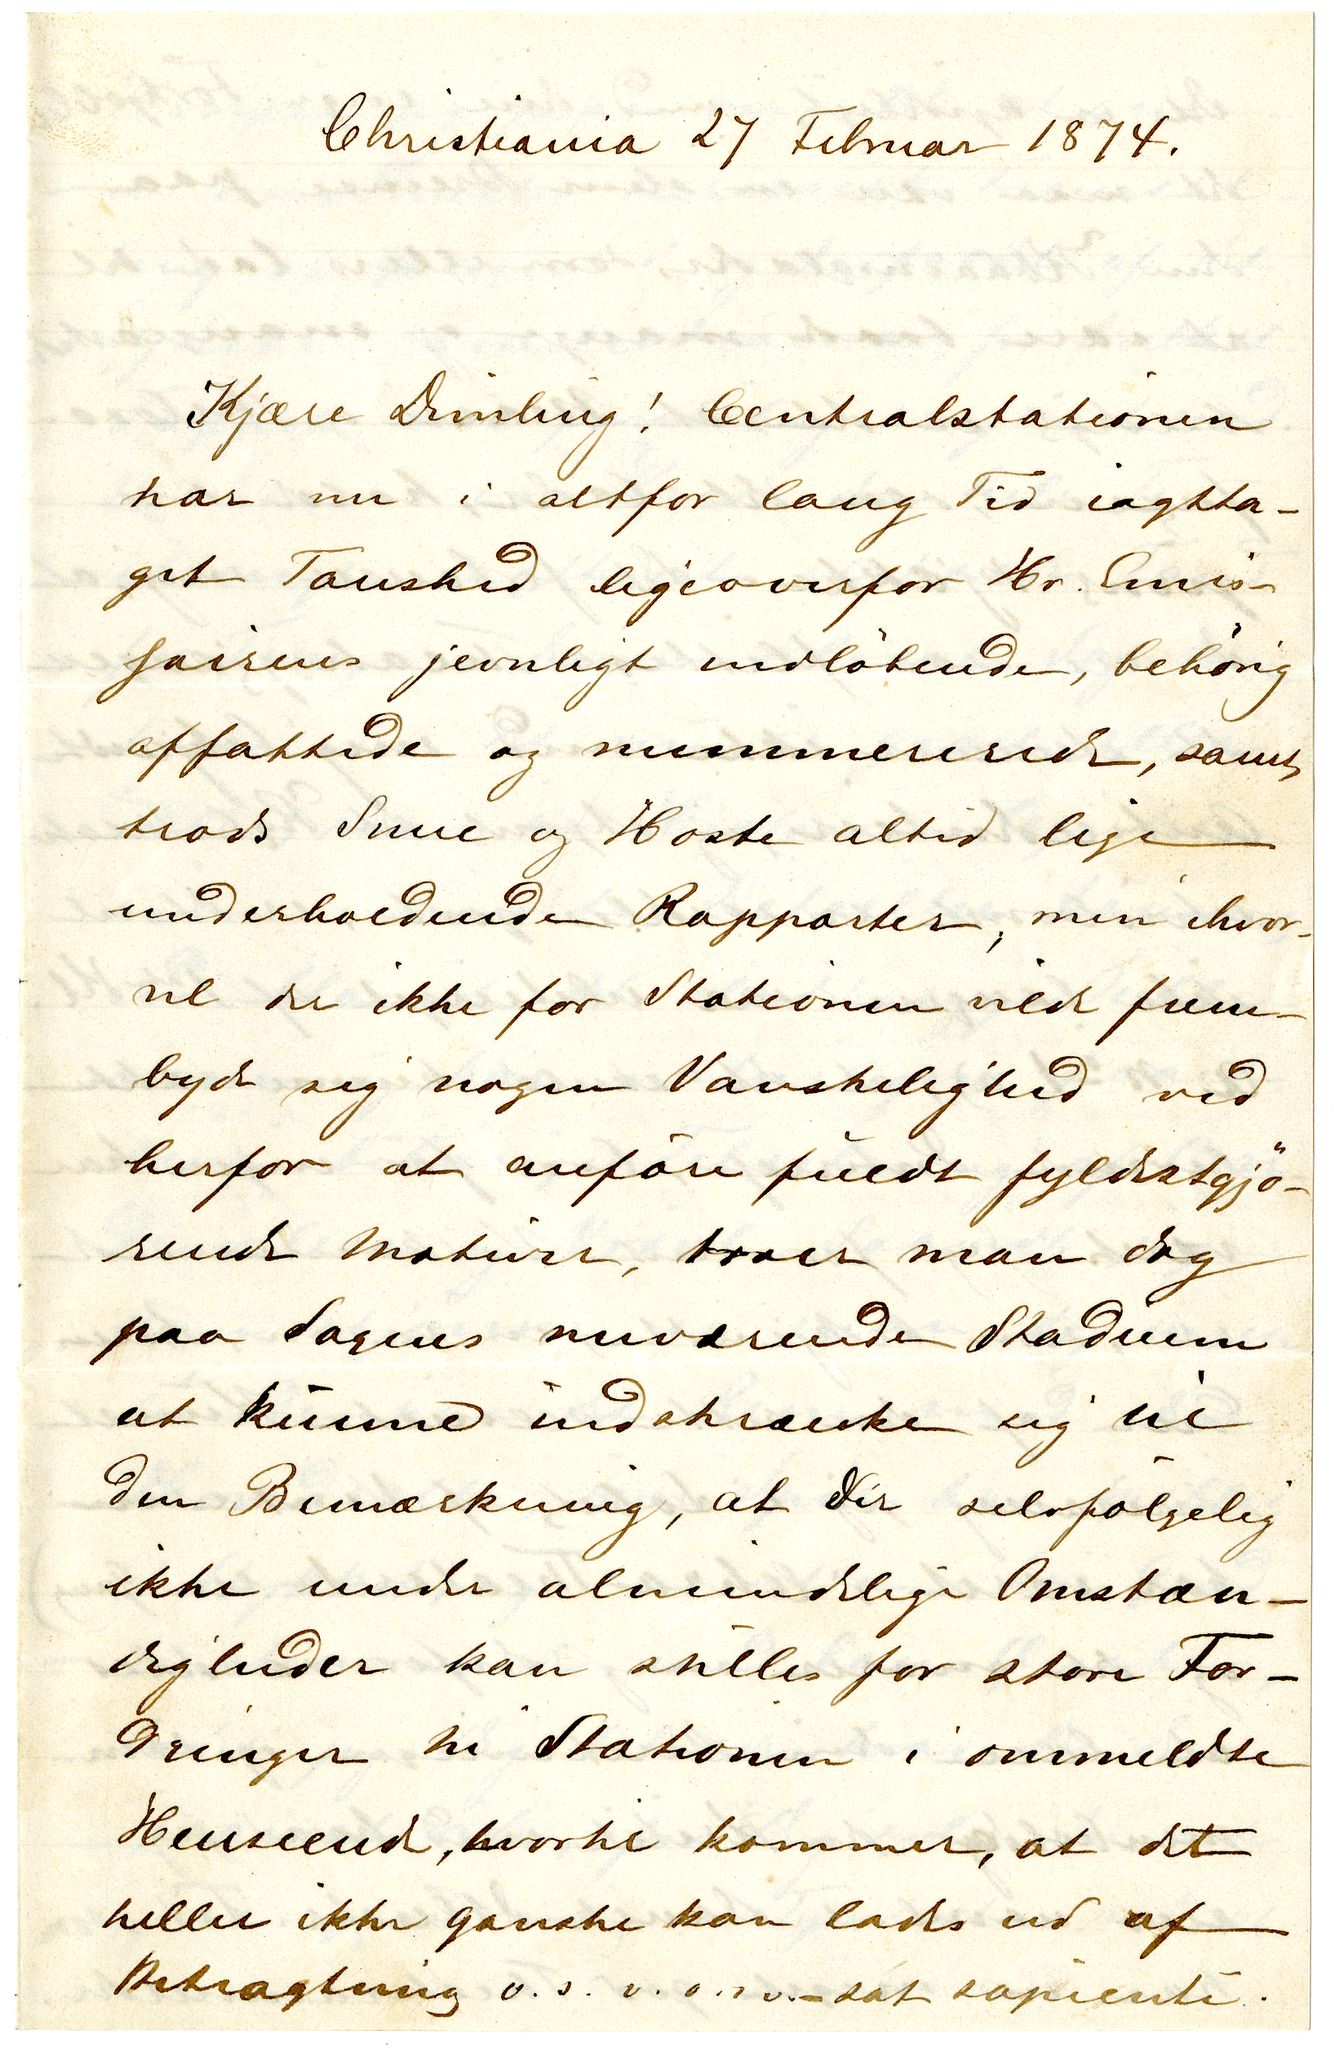 Christiania 27 Februar 1874.
Kjære Dimling! Centralstationen
har nu i altfor lang Tid iagtta-
get Taushed ligeoverfor Hr. Emis-
sairens jevnligt indløbende, behørig
affattede og nummererede, samt,
trods Snue og Hoste altid lige
underholdende Rapporter, men ihvor-
vel der ikke for Stationen vilde frem-
byde sig nogen Vanskelighed ved
herfor at anføre fuldt fyldestgjö-
rende Motiver, troer man dog
paa Sagens nuværende Stadium
at kunne indskrænke sig til
den Bemærkning, at der selvfølgelig
ikke under almindelige Omstæn-
digheder kan stilles for store For-
dringer til Stationen i ommeldte
Henseende, hvortil kommer, at det
heller ikke ganske kan lades ud af
Betragtning o. s. v. o. s v. – sat sapienti.